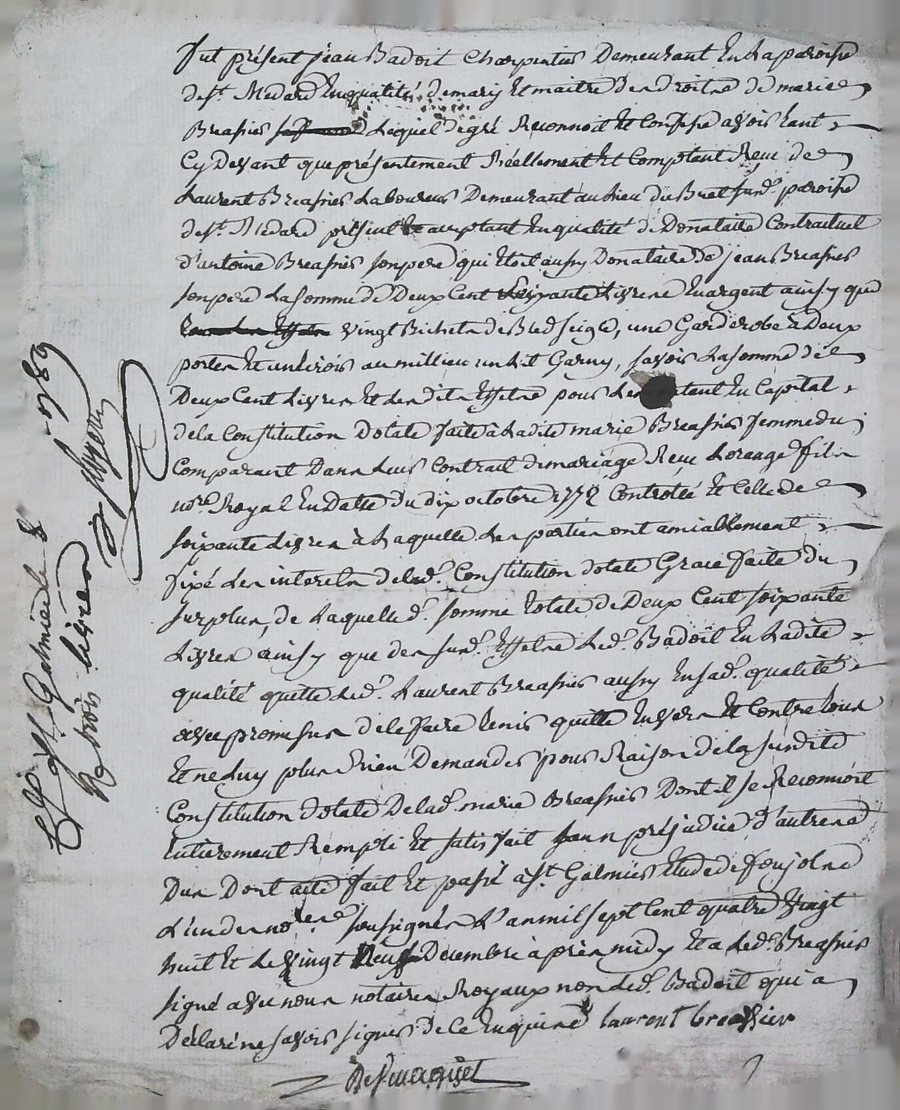 fut présent jean Badoit Charpentier Demeurant En La paroisse
de st. Medard En qualité de mary Et maitre des droits de marie
Breasier Lequel de gré Reconnoit Et Confesse avoir tant
Cy Devant que présentement Réellement Et Comptant Reçu de
Laurent Breasier Laboureur Demeurant au Lieu du Buet susd. paroisse
de st. Medard présent acceptant En qualité de Donataire Contractuel
d'antoine Breasier son pere qui Etoit aussy Donataire de jean Breasier
son pere La somme de Deux Cent Soixante Livres En argent ainsy que
vingt Bichets de Bled seigle, une Garderobe à Deux
portes Et un tirois au millieu un Lit Garny, savoir La somme de
Deux Cent Livres Et Les dits Effets pour Le En Capital
de la Constitution dotale faite à Ladite marie Breasier femme du
Comparant Dans Leur Contrait de mariage Reçu Lorange fils
nore. Royal En Datte du dix octobre 1772 Controlée Et Celle de
soixante Livres à Laquelle Les parties ont amiablement
fixé Les interets de lad. Constitution dotale Grace faite du
surplus, de Laquelle d. somme totale de Deux Cent soixante
Livres ainsy que des susd. Effets Led. Badoit En Ladite
qualité quitte Led. Laurent Breasier aussy En sad. qualité
avec promesse de le faire tenir quitte Envers Et Contre tous
Et ne Luy plus Rien Demander pour Raison de la susdite
Constitution dotale De lad. marie Breasier Dont il se Reconnoit
Entierement Rempli Et satisfait sans préjudice d'autres
Dus Dont acte fait Et passé a st. Galmier Etude de foujols
L'un des nores. soussignés L'an mil sept Cent quatre vingt
huit Et Le vingt Neuf Decembre après midy Et a Led. Breasier
signé avec nous notaires Royaux non Led. Badoit qui a
Déclaré ne savoir signer de ce Enquis laurent breassier
Desmaquet
st. Galmier le 8 1789
R trois livres